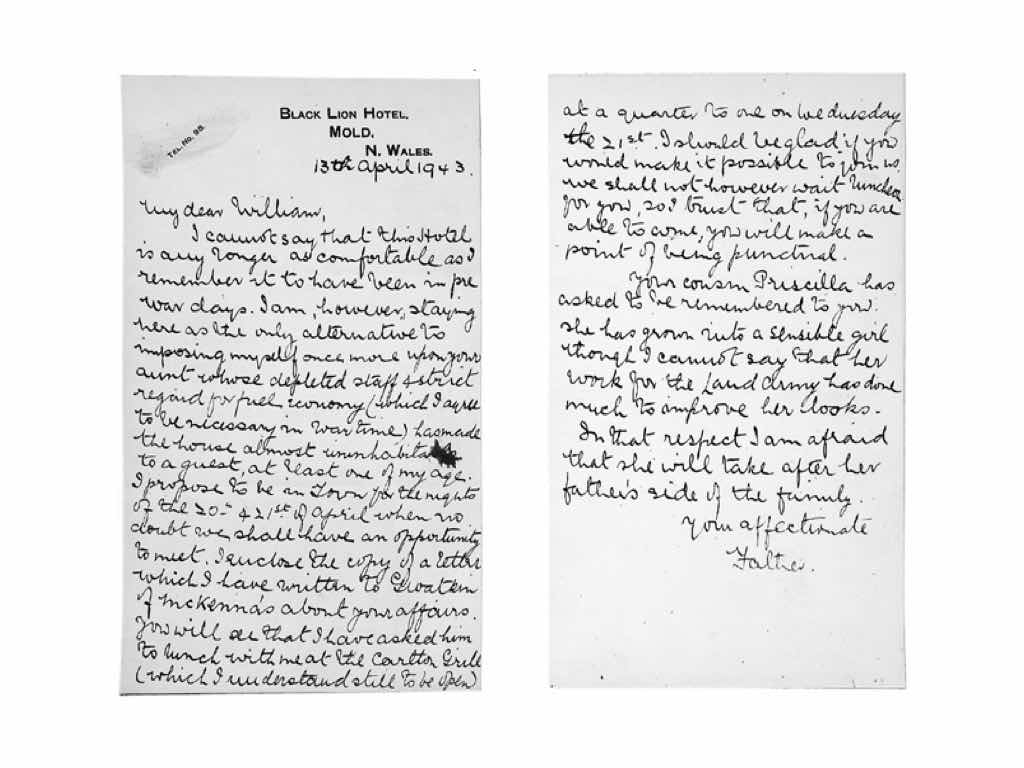 TEL. No. 98.
BLACK LION HOTEL,
MOLD,
N. WALES.
13th April 1943.
My dear William,
I cannot say that this Hotel
is any longer as comfortable as I
remember it to have been in pre
war days. I am, however, staying
here as the only alternative to
imposing myself once more upon your
aunt whose depleted staff & strict
regard for fuel economy (which I agree
to be necessary in war time) has made
the house almost uninhabitable
to a guest, at least one of my age.
I propose to be in Town for the nights
of the 20th & 21st of April when no
doubt we shall have an opportunity
to meet. I enclose the copy of a letter
which I have written to
of McKenna's about your affairs.
You will see that I have asked him
to lunch with me at the Carlton Grill
(which I understand still to be open)
at a quarter to one on Wednesday
the 21st. I should be glad if you
would make it possible to join us.
we shall not however wait luncheon
for you, so I trust that, if you are
able to come, you will make a
point of being punctual.
Your cousin Priscilla has
asked to be remembered to you.
She has grown into a sensible girl
though I cannot say that her
work for the Land Army has done
much to improve her looks.
In that respect I am afraid
that she will take after her
father's side of the family.
Your affectionate
Father.